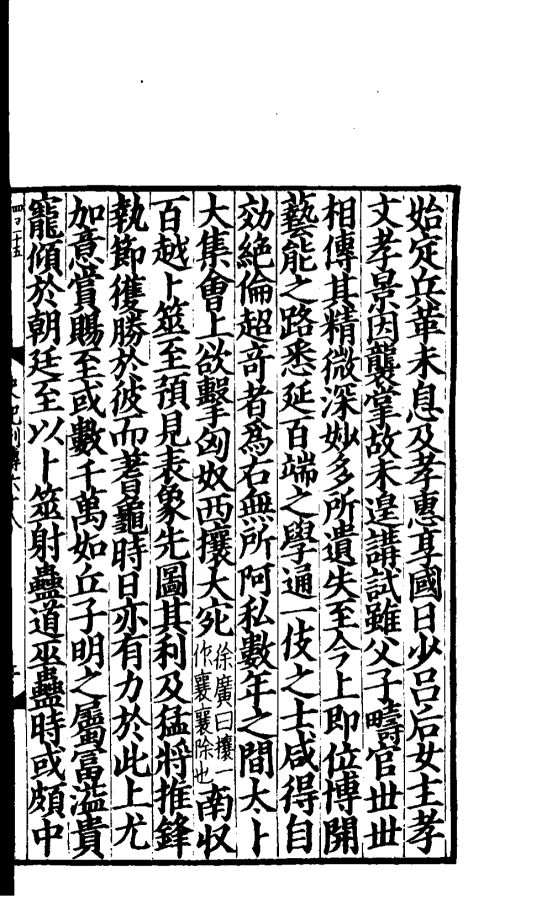 始定兵革未息及孝惠享國日少呂后女主孝
文孝景因襲掌故未遑講試雖父子疇官世世
相傳其精微深妙多所遺失至今上即位博開
藝能之路悉延百端之學通一伎之士咸得自
効絶倫超竒者爲右無所阿私數年之間太卜
大集會上欲擊匈奴西攘大宛徐廣曰攘一作襄襄除也南収
百越卜筮至預見表象先圖其利及猛將推鋒
執節獲勝於彼而蓍龜時日亦有力於此上尤
加意賞賜至或數千萬如丘子明之屬富溢貴
寵傾於朝廷至以卜筮射蠱道巫蠱時或頗中